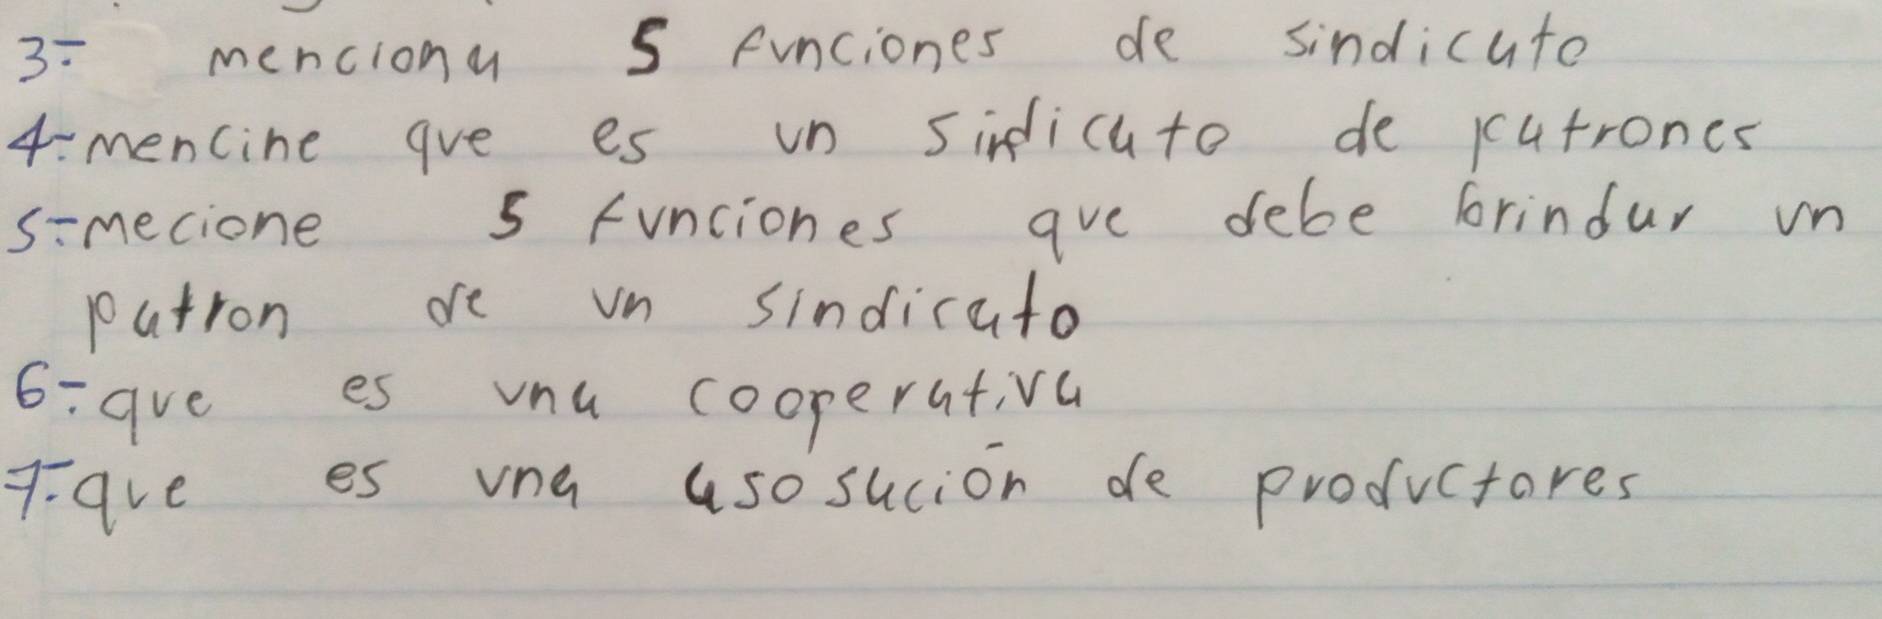 3- menciona 5 funciones de sindicato
4- mencine que es un sindicato de patrones
5- mecione 5 funciones que debe brindar un
patron de un sindicato
6- que es una cooperativa
7- que es una asosación de productores